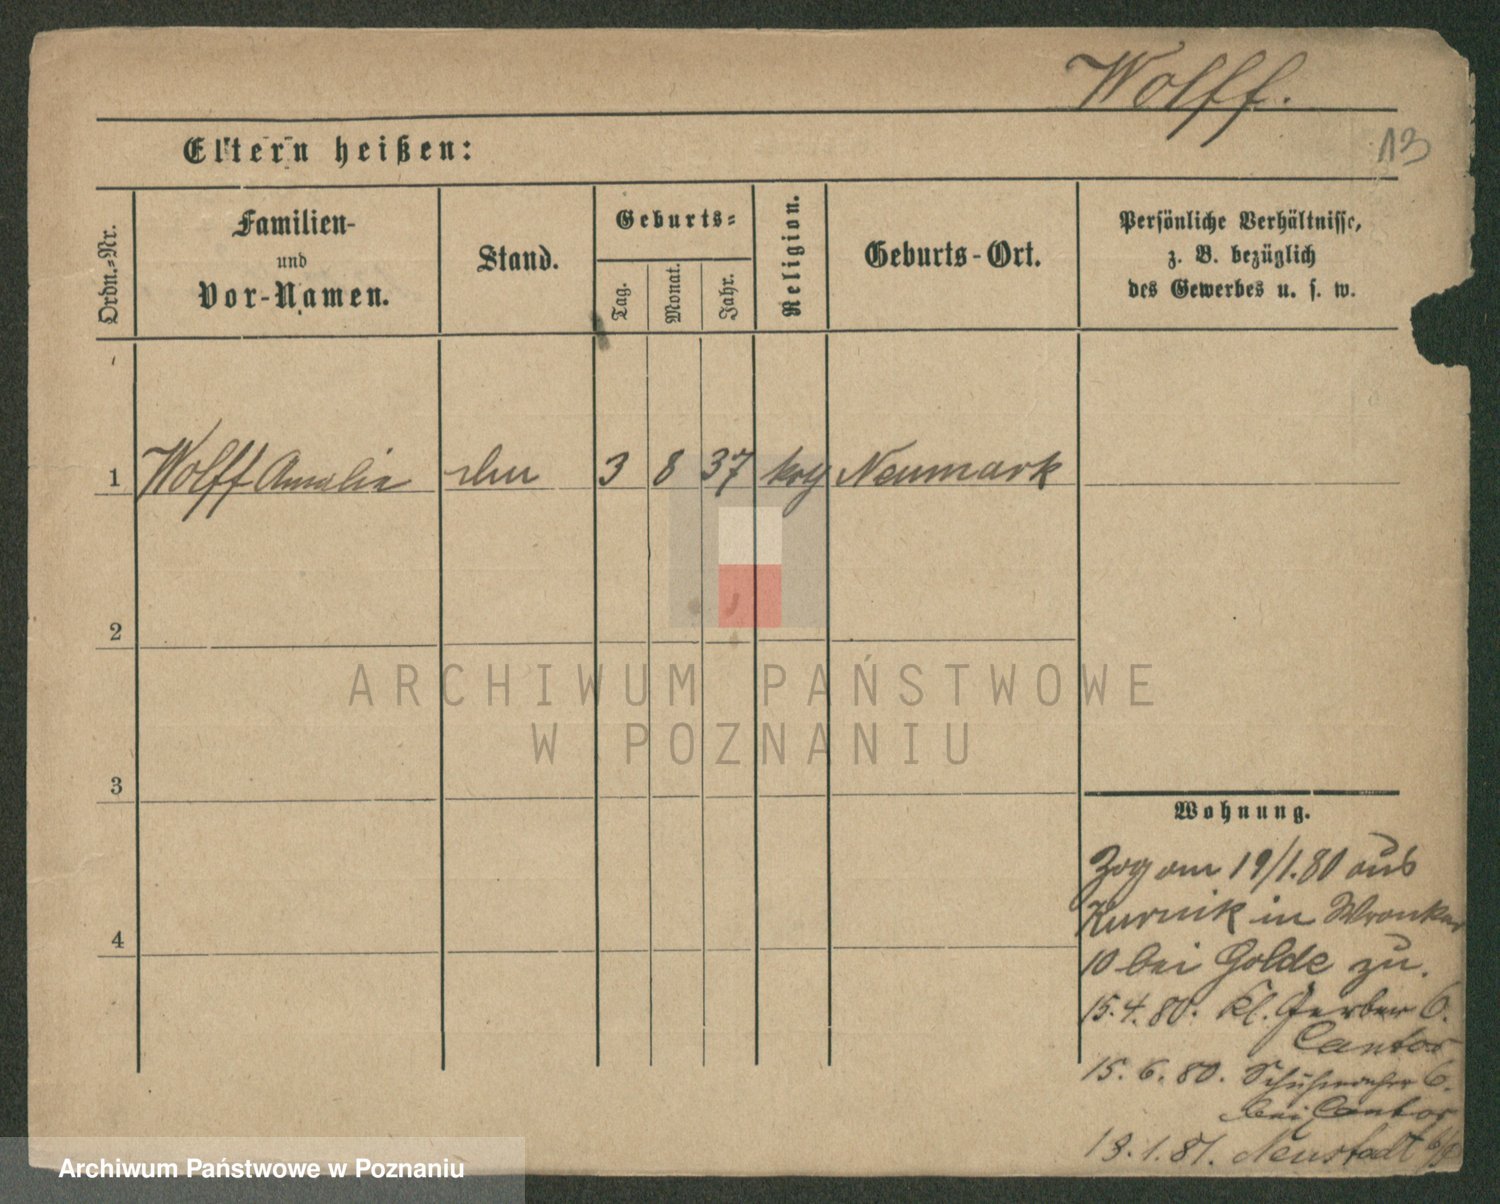 Wolff.
13
Eltern heißen:
Ordn.-Nr.
Familien-
und
Vor-Namen.
Stand.
Geburts-
Tag.
Monat.
Jahr.
Religion.
Geburts-Ort.
Persönliche Verhältnisse,
z. B. bezüglich
des Gewerbes u. s. w.
1 Wolff Amalie 3 8 37 Neumark
2
3
4
Wohnung.
Zog am 19/1.80 aus
Kurnik in Wronker
10 bei Golde zu.
15.4.80. Kl. Gerber 6.
Cantor
15.6.80. Schuhmacher 6.
bei Cantor
13.1.81. Neustadt
ARCHIWUM PAŃSTWOWE
W POZNANIU
Archiwum Państwowe w Poznaniu